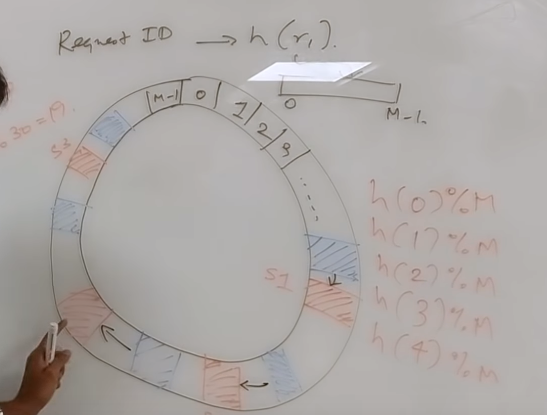 Request ID → h(r₁).
0
M-1.
M-1 0 1 2 3 .....
30 = 19.
S3
S1
h(0)%M
h(1)%M
h(2)%M
h(3)%M
h(4)%M